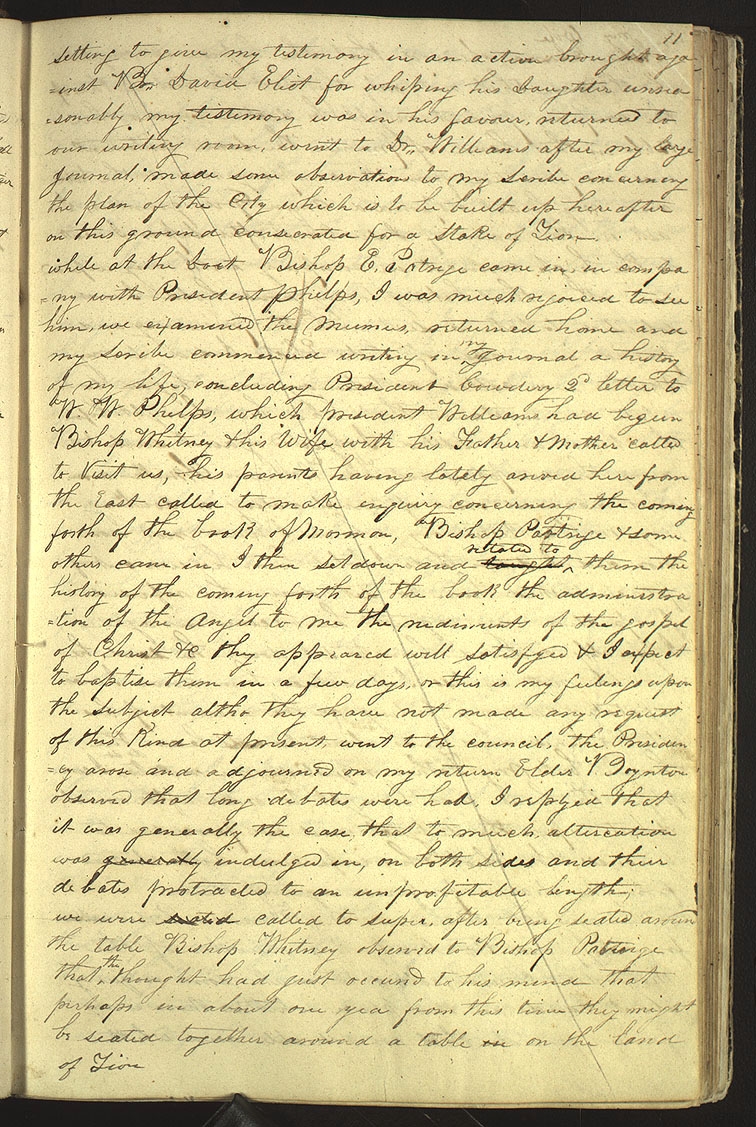 11
setting to give my testimony in an action brought aga
=inst Br. David Eliot for whiping his Daughter unrea
=sonably my testimony was in his favour, returned to
our writing room, went to Dr. Williams after my large
journal, made some observations to my scribe concerning
the plan of the City which is to be built up hereafter
on this ground consecrated for a Stake of Zion.
while at the Doct Bishop E. Patrige came in, in compa
=ny with President Phelps, I was much rejoiced to see
him, we examened the mumies, returned home and
my scribe commenced writing in my Journal a history
of my life, concluding President Cowdery 2d letter to
W. W. Phelps, which president Williams had begun
Bishop Whitney & his Wife with his Father & Mother called
to Visit us, his parents having lately arived here from
the East called to make enquiry concerning the coming
forth of the book of Mormon, Bishop Partrige & some
others came in I then set down and taught related to ^ them the
history of the coming forth of the book the administra
=tion of the Angel to me the rudiments of the gospel
of Christ &c they appeared well satisfyed & I expect
to baptise them in a few days, or this is my feelings upon
the subject altho they have not made any request
of this Kind at present, went to the council, the Presiden
=cy arose and adjourned on my return Elder Boynton
observed that long debates were had, I replyed that
it was generally the case, that to much altercation
was generally indulged in, on both sides and their
debates protracted to an unprofitable length,
we were seated called to super, after being seated around
the table Bishop Whitney observed to Bishop Partrige
that the thought had just occured to his mind that
perhaps in about one yea from this time they might
be seated together around a table in on the land
of Zion